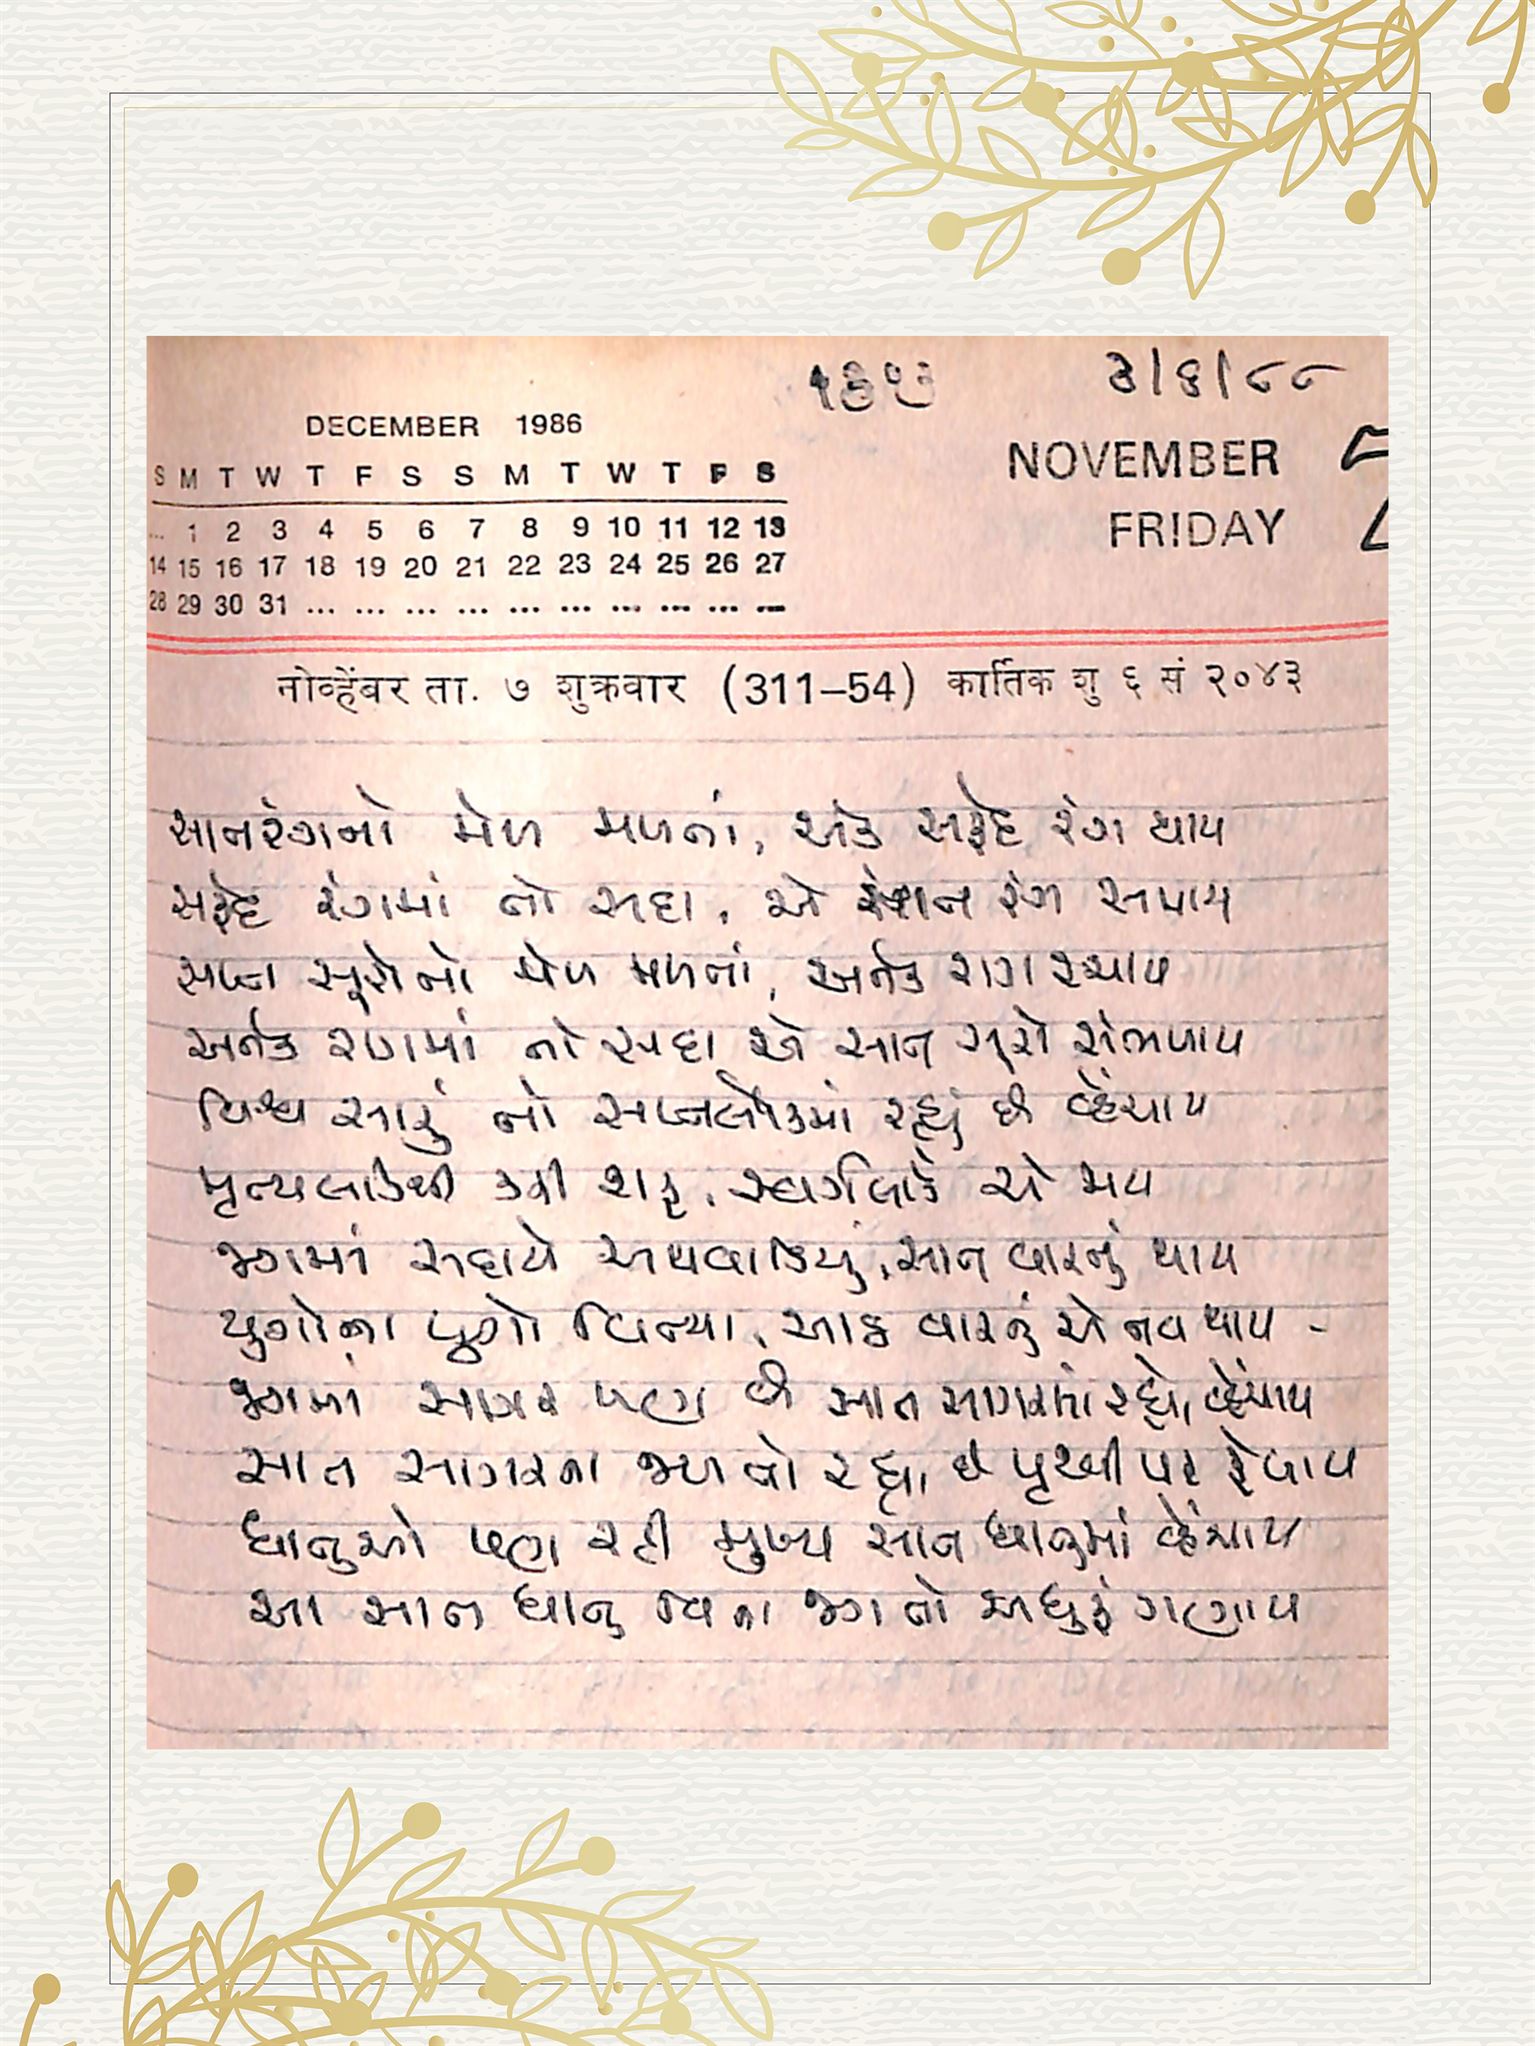 ૩/૬/૮૮
DECEMBER 1986
NOVEMBER 7
S M T W T F S S M T W T F S
FRIDAY
... 1 2 3 4 5 6 7 8 9 10 11 12 13
14 15 16 17 18 19 20 21 22 23 24 25 26 27
28 29 30 31 ... ... ... ... ... ... ... ... ... ...
नोव्हेंबर ता. ७ शुक्रवार (311–54) कार्तिक शु ६ सं २०४३
સાતરંગનો મેળ મળતાં, એક સફેદ રંગ થાય
સફેદ રંગમાં તો સદા, એ સાત રંગ સમાય
સપ્ત સૂરોનો મેળ મળતાં, અનેક રાગ રચાય
અનેક રાગમાં તો સદા એ સાત સૂરો સંભળાય
વિશ્વ સારું તો સપ્તલોકમાં રહ્યું છે વ્હેંચાય
મૃત્યુલોકથી કરી શરૂ, સ્વર્ગલોકે એ મપાય
જગમાં સદાયે અઠવાડિયું, સાત વારનું થાય
યુગોના યુગો વિત્યા, આઠ વારનું એ નવ થાય -
જગમાં સાગર પણ છે સાત સાગરમાં રહ્યો, વ્હેંચાય
સાત સાગરના જળ તો રહ્યા, છે પૃથ્વી પર ફેલાય
ધાતુઓ પણ રહી મુખ્ય સાત ધાતુમાં વ્હેંચાય
આ સાત ધાતુ વિના જગ તો અધુરૂં ગણાય